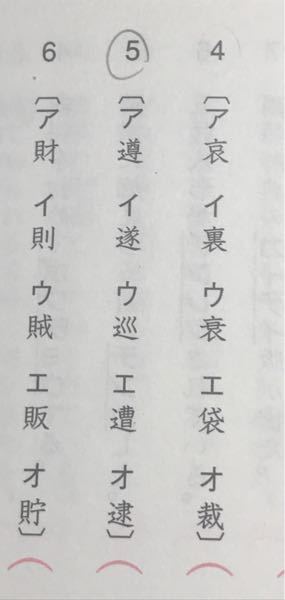 4 〔ア 哀 イ 裏 ウ 衰 エ 袋 オ 裁〕（
5 〔ア 遵 イ 遂 ウ 巡 エ 遭 オ 逮〕（
6 〔ア 財 イ 則 ウ 賊 エ 販 オ 貯〕（